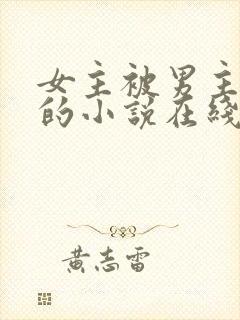 女主被男主
的小說在綫
黃志雷